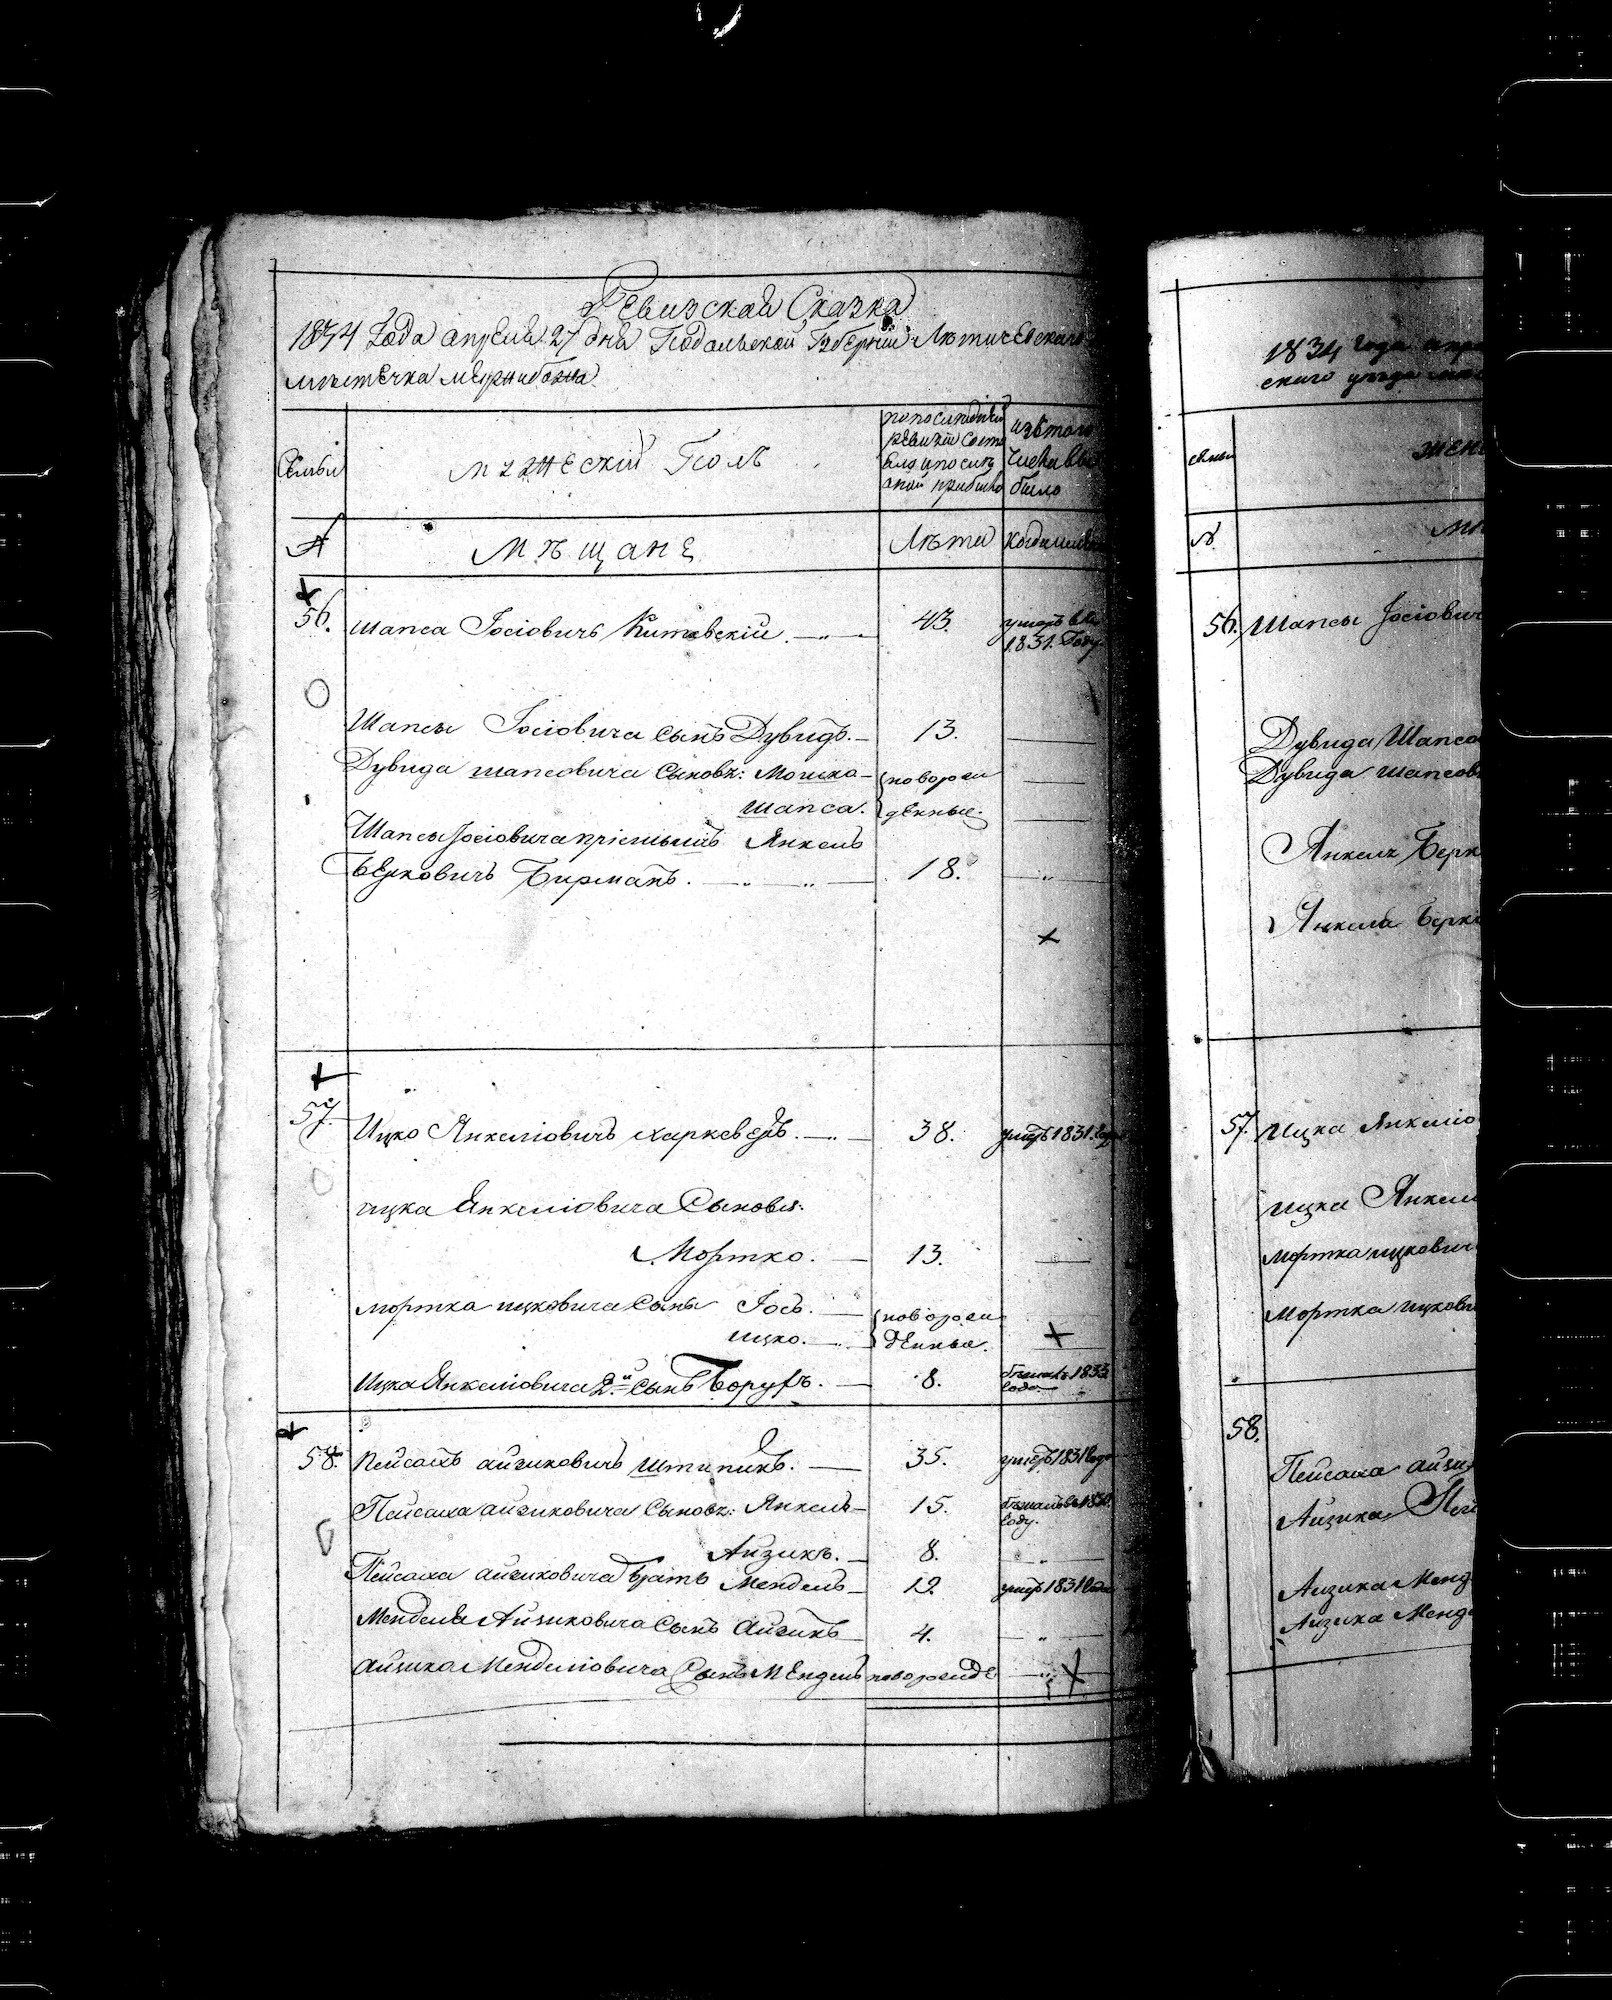 Ревизская Сказка
1834 Года апреля 27 дня Подольской Губернии Летичевского
местечка Межибожа
Семьи
мужеский Полъ
по последней
ревизии состо
яло и после
оной прибыло
изъ того
числа вы
было
№
Мѣщане
Лѣта
Когда именно
56.
Шапса Іосіовичъ Китовскій.
43.
умеръ въ
1831. Году
Шапсы Іосіовича сынъ Дувидъ.
13.
Дувида шапсовича Сыновя: Мошко
новорож
Шапса.
денные.
Шапсы Іосіовича пріемышъ Янкель
Берковичъ Бирманъ.
18.
57.
Ицко Янкеліовичъ
38.
умеръ 1831. года
ицка Янкеліовича Сыновя:
Мортко.
13.
мортка ицковича Сыны Іось.
новорож
ицко.
денные.
Ицка Янкеліовича 2й сынъ Борухъ.
8.
бѣжалъ 1833
года
58.
Пейсахъ айзиковичъ
35.
умеръ 1831 года
Пейсаха айзиковича Сыновя: Янкель
15.
году.
Айзикъ.
8.
Пейсаха айзиковича братъ Мендель
12.
умеръ 1831 года
Менделя Айзиковича Сынъ Айзикъ
4.
айзика Менделіовича Сынъ Мендель
новорожде
1834 года апре
ского уѣзда
семьи
жен
№
56.
Шапсы Іосіович
Дувида Шапсо
Дувида шапсов
Янкель Берк
Янкеля Берко
57.
Ицка Янкеліо
ицка Янкел
Мортка ицкович
Мортка ицкови
58.
Пейсаха айзи
Айзика Пей
Айзика Менд
Айзика Менд